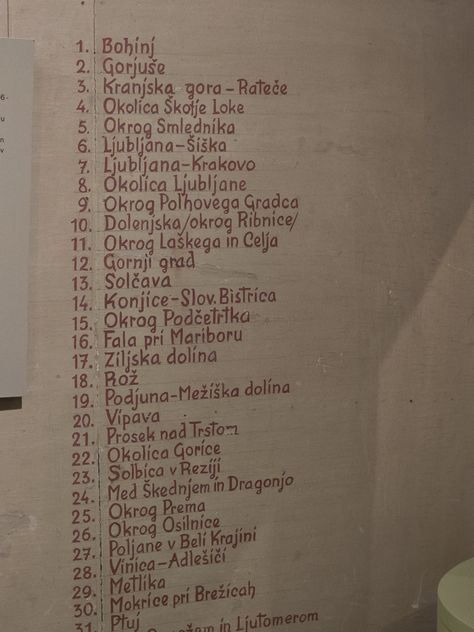 6-
u
n
v
1. Bohinj
2. Gorjuše
3. Kranjska gora – Rateče
4. Okolica Škofje Loke
5. Okrog Smlednika
6. Ljubljana–Šiška
7. Ljubljana–Krakovo
8. Okolica Ljubljane
9. Okrog Polhovega Gradca
10. Dolenjska/okrog Ribnice/
11. Okrog Laškega in Celja
12. Gornji grad
13. Solčava
14. Konjice–Slov. Bistrica
15. Okrog Podčetrtka
16. Fala pri Mariboru
17. Ziljska dolina
18. Rož
19. Podjuna–Mežiška dolina
20. Vipava
21. Prosek nad Trstom
22. Okolica Gorice
23. Solbica v Reziji
24. Med Škednjem in Dragonjo
25. Okrog Prema
26. Okrog Osilnice
27. Poljane v Beli Krajini
28. Vinica–Adlešiči
29. Metlika
30. Mokrice pri Brežicah
31. Ptuj
in Ljutomerom